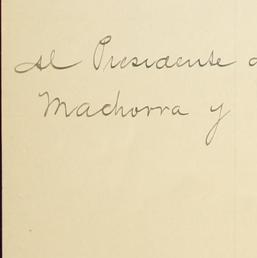 al Presidente
Machorra y